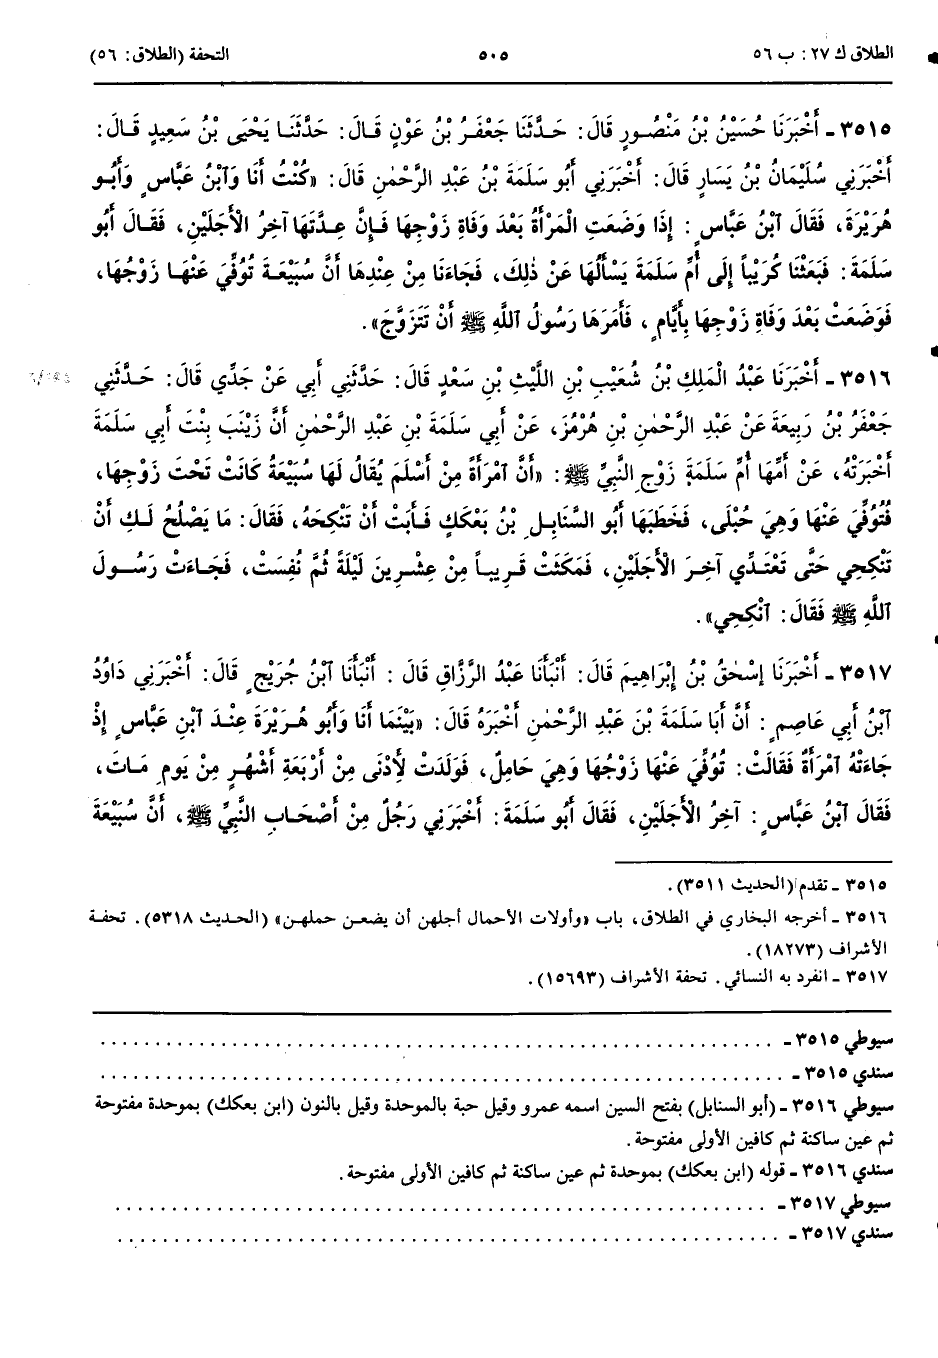 الطلاق ك ٢٧ : ب ٥٦ ٥٠٥ التحفة (الطلاق: ٥٦)
٣٥١٥ ـ أَخْبَرَنَا حُسَيْنُ بْنُ مَنْصُورٍ قَالَ: حَدَّثَنَا جَعْفَرُ بْنُ عَوْنٍ قَالَ: حَدَّثَنَا يَحْيَى بْنُ سَعِيدٍ قَالَ:
أَخْبَرَنِي سُلَيْمَانُ بْنُ يَسَارٍ قَالَ: أَخْبَرَنِي أَبُو سَلَمَةَ بْنُ عَبْدِ الرَّحْمٰنِ قَالَ: «كُنْتُ أَنَا وَٱبْنُ عَبَّاسٍ وَأَبُو
هُرَيْرَةَ، فَقَالَ ٱبْنُ عَبَّاسٍ: إِذَا وَضَعَتِ الْمَرْأَةُ بَعْدَ وَفَاةِ زَوْجِهَا فَإِنَّ عِدَّتَهَا آخِرُ الْأَجَلَيْنِ، فَقَالَ أَبُو
سَلَمَةَ: فَبَعَثْنَا كُرَيْباً إِلَى أُمِّ سَلَمَةَ يَسْأَلُهَا عَنْ ذٰلِكَ، فَجَاءَنَا مِنْ عِنْدِهَا أَنَّ سُبَيْعَةَ تُوُفِّيَ عَنْهَا زَوْجُهَا،
فَوَضَعَتْ بَعْدَ وَفَاةِ زَوْجِهَا بِأَيَّامٍ، فَأَمَرَهَا رَسُولُ ٱللَّهِ ﷺ أَنْ تَتَزَوَّجَ».
٣٥١٦ ـ أَخْبَرَنَا عَبْدُ الْمَلِكِ بْنُ شُعَيْبِ بْنِ اللَّيْثِ بْنِ سَعْدٍ قَالَ: حَدَّثَنِي أَبِي عَنْ جَدِّي قَالَ: حَدَّثَنِي
جَعْفَرُ بْنُ رَبِيعَةَ عَنْ عَبْدِ الرَّحْمٰنِ بْنِ هُرْمُزَ، عَنْ أَبِي سَلَمَةَ بْنِ عَبْدِ الرَّحْمٰنِ أَنَّ زَيْنَبَ بِنْتَ أَبِي سَلَمَةَ
أَخْبَرَتْهُ، عَنْ أُمِّهَا أُمِّ سَلَمَةَ زَوْجِ النَّبِيِّ ﷺ: «أَنَّ ٱمْرَأَةً مِنْ أَسْلَمَ يُقَالُ لَهَا سُبَيْعَةُ كَانَتْ تَحْتَ زَوْجِهَا،
فَتُوُفِّيَ عَنْهَا وَهِيَ حُبْلَى، فَخَطَبَهَا أَبُو السَّنَابِلِ بْنُ بَعْكَكٍ فَأَبَتْ أَنْ تَنْكِحَهُ، فَقَالَ: مَا يَصْلُحُ لَكِ أَنْ
تَنْكِحِي حَتَّى تَعْتَدِّي آخِرَ الْأَجَلَيْنِ، فَمَكَثَتْ قَرِيباً مِنْ عِشْرِينَ لَيْلَةً ثُمَّ نُفِسَتْ، فَجَاءَتْ رَسُولَ
ٱللَّهِ ﷺ فَقَالَ: ٱنْكِحِي».
٣٥١٧ ـ أَخْبَرَنَا إِسْحٰقُ بْنُ إِبْرَاهِيمَ قَالَ: أَنْبَأَنَا عَبْدُ الرَّزَّاقِ قَالَ: أَنْبَأَنَا ٱبْنُ جُرَيْجٍ قَالَ: أَخْبَرَنِي دَاوُدُ
ٱبْنُ أَبِي عَاصِمٍ: أَنَّ أَبَا سَلَمَةَ بْنَ عَبْدِ الرَّحْمٰنِ أَخْبَرَهُ قَالَ: «بَيْنَمَا أَنَا وَأَبُو هُرَيْرَةَ عِنْدَ ٱبْنِ عَبَّاسٍ إِذْ
جَاءَتْهُ ٱمْرَأَةٌ فَقَالَتْ: تُوُفِّيَ عَنْهَا زَوْجُهَا وَهِيَ حَامِلٌ، فَوَلَدَتْ لِأَدْنَى مِنْ أَرْبَعَةِ أَشْهُرٍ مِنْ يَوْمِ مَاتَ،
فَقَالَ ٱبْنُ عَبَّاسٍ: آخِرُ الْأَجَلَيْنِ، فَقَالَ أَبُو سَلَمَةَ: أَخْبَرَنِي رَجُلٌ مِنْ أَصْحَابِ النَّبِيِّ ﷺ، أَنَّ سُبَيْعَةَ
٣٥١٥ ـ تقدم (الحديث ٣٥١١).
٣٥١٦ ـ أخرجه البخاري في الطلاق، باب «وأولات الأحمال أجلهن أن يضعن حملهن» (الحديث ٥٣١٨). تحفة
الأشراف (١٨٢٧٣).
٣٥١٧ ـ انفرد به النسائي. تحفة الأشراف (١٥٦٩٣).
سيوطي ٣٥١٥ ـ ..........................................................
سندي ٣٥١٥ ـ ..........................................................
سيوطي ٣٥١٦ ـ (أبو السنابل) بفتح السين اسمه عمرو وقيل حبة بالموحدة وقيل بالنون (ابن بعكك) بموحدة مفتوحة
ثم عين ساكنة ثم كافين الأولى مفتوحة.
سندي ٣٥١٦ ـ قوله (ابن بعكك) بموحدة ثم عين ساكنة ثم كافين الأولى مفتوحة.
سيوطي ٣٥١٧ ـ ..........................................................
سندي ٣٥١٧ ـ ..........................................................